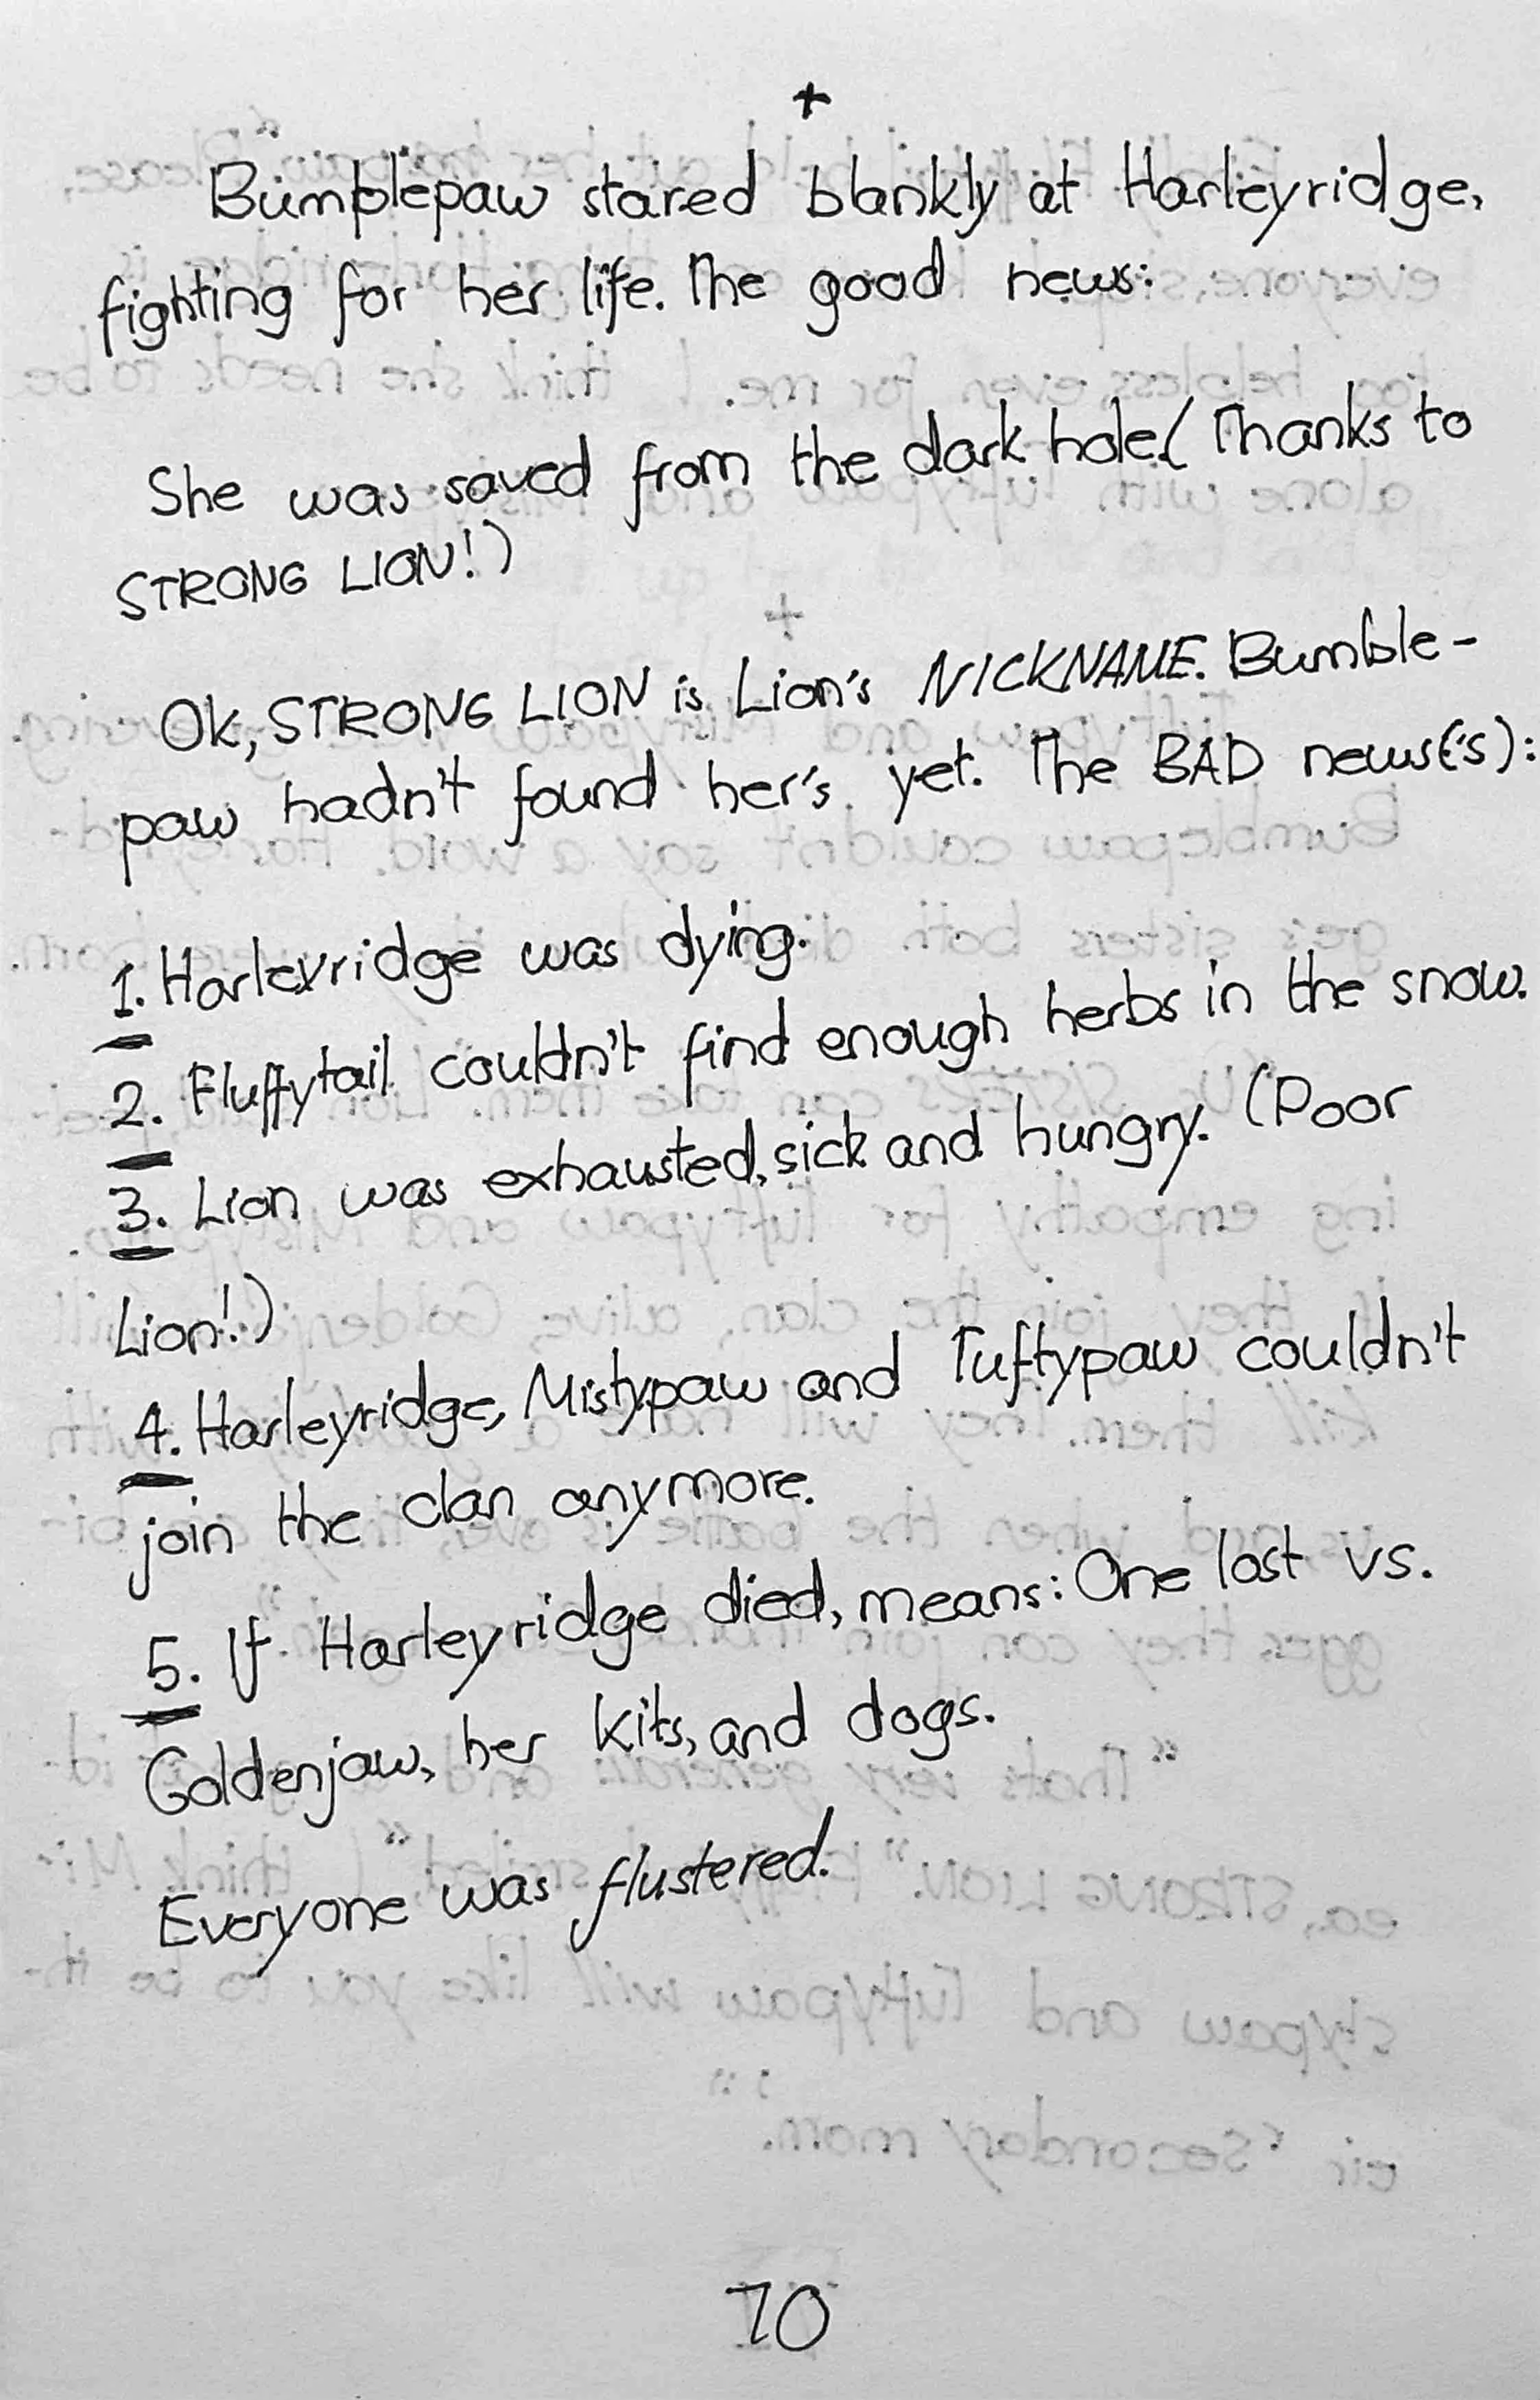 +
Bumblepaw stared blankly at Harleyridge,
fighting for her life. The good news:
She was saved from the dark hole(Thanks to
STRONG LION!)
Ok, STRONG LION is Lion's NICKNAME. Bumble-
paw hadn't found her's yet. The BAD news('s):
1. Harleyridge was dying.
2. Fluffytail couldn't find enough herbs in the snow.
3. Lion was exhausted, sick and hungry. (Poor
Lion!)
4. Harleyridge, Mistypaw and Tuftypaw couldn't
join the clan anymore.
5. If Harleyridge died, means: One lost vs.
Goldenjaw, her kits, and dogs.
Everyone was flustered.
70